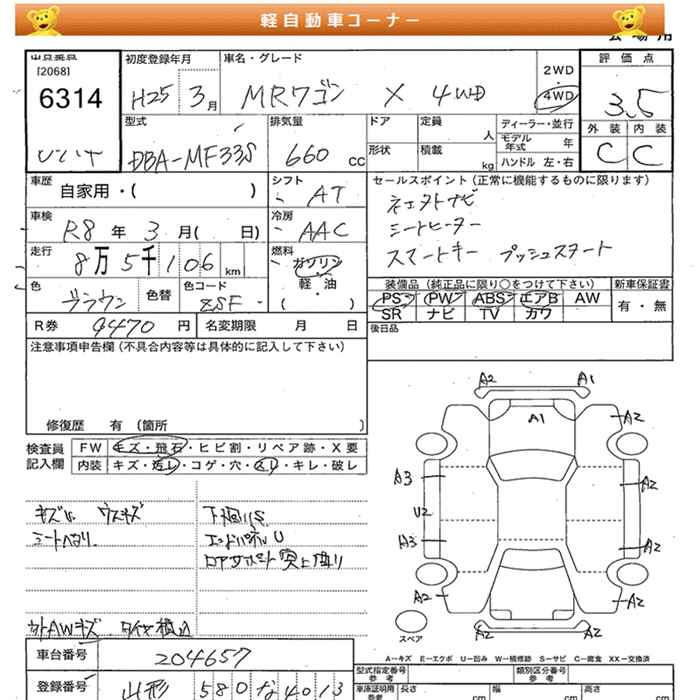 軽自動車コーナー
出品番号
[2068]
6314
初度登録年月
H25 3月
車名・グレード
MRワゴン X 4WD
2WD
・
4WD
評価点
3.5
外装 内装
C C
型式
DBA-MF33S
排気量
660 cc
ドア
定員
人
形状
積載
kg
ディーラー・並行
モデル年式 年
ハンドル 左・右
車歴
自家用・( )
シフト
AT
セールスポイント (正常に機能するものに限ります)
シートヒーター
スマートキー プッシュスタート
車検
R8年 3月( 日)
冷房
AAC
走行
8万5千106km
燃料
ガソリン
・
軽・油
( )
色
ブラウン
色替
色コード
ZSF
装備品 (純正品に限り○をつけて下さい)
PS PW ABS エアB AW
SR ナビ TV カワ
新車保証書
有・無
R券 9470円
名変期限 月 日
後日品
注意事項申告欄 (不具合内容等は具体的に記入して下さい)
修復歴 有 (箇所 )
検査員
記入欄
FW キズ・飛石・ヒビ割・リペア跡・X要
内装 キズ・汚レ・コゲ・穴・スレ・キレ・破レ
A2 A1
A1
A2
A3 A2
U2
A3 A2
A2 A2
A2 A2
スペア
キズU ウスキズ
シートヘタリ
下廻りS
エンドパネルU
ロアサポート突上曲り
外AWキズ タイヤ積込
A-キズ E-エクボ U-凹み W-補修跡 S-サビ C-腐食 XX-交換済
車台番号 204657
登録番号 山形 580 な 4013
型式指定番号
参考
類別区分番号
参考
車庫証明用
参考
長さ cm
幅 cm
高さ cm